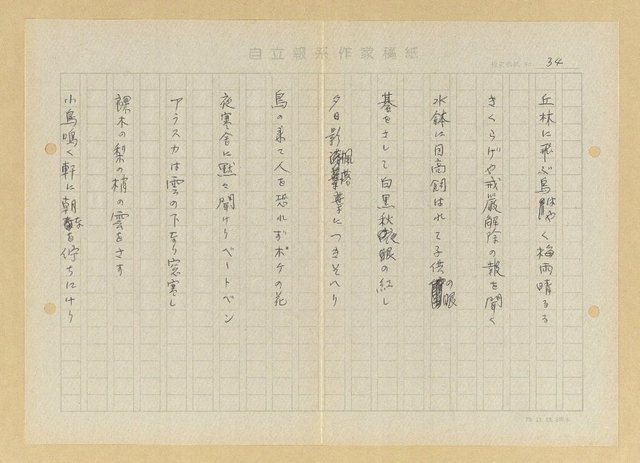 自立報系作家稿紙
34
丘林に飛ぶ鳥はやく梅雨晴るる
きくらげや戒厳解除の報を聞く
水鉢に目高飼はれて子供の眼
碁をさして白黒秋の眼の紅し
夕日影楓につきそへり
鳥の来て人を恐れずボケの花
夜寒舎に黙々聞けりベートベン
アラスカは雲の下なり窓寒し
裸木の梨の梢の雲をさす
小鳥鳴く軒に朝を佇ちにけり